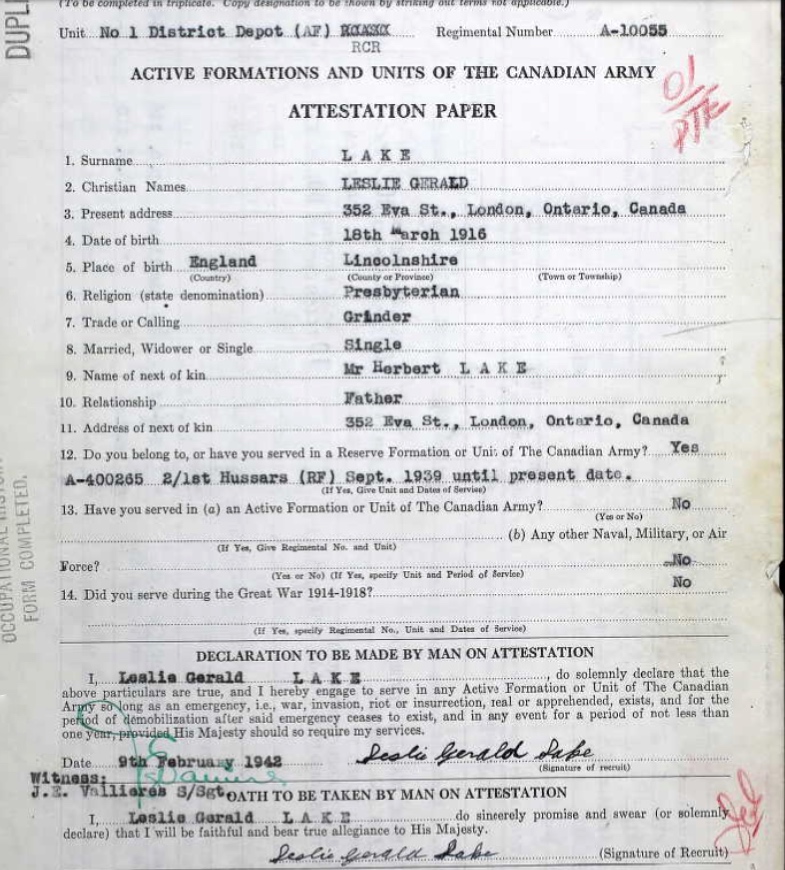 (To be completed in triplicate. Copy designation to be shown by striking out terms not applicable.)
DUPL
Unit No 1 District Depot (AF) Regimental Number A-10055
RCR
ACTIVE FORMATIONS AND UNITS OF THE CANADIAN ARMY
01/
PTE
ATTESTATION PAPER
1. Surname L A K E
2. Christian Names LESLIE GERALD
3. Present address 352 Eva St., London, Ontario, Canada
4. Date of birth 18th March 1916
5. Place of birth England Lincolnshire
(Country) (County or Province) (Town or Township)
6. Religion (state denomination) Presbyterian
7. Trade or Calling Grinder
8. Married, Widower or Single Single
9. Name of next of kin Mr Herbert L A K E
10. Relationship Father
11. Address of next of kin 352 Eva St., London, Ontario, Canada
12. Do you belong to, or have you served in a Reserve Formation or Unit of The Canadian Army? Yes
A-400265 2/1st Hussars (RF) Sept. 1939 until present date.
(If Yes, Give Unit and Dates of Service)
13. Have you served in (a) an Active Formation or Unit of The Canadian Army? No
(Yes or No)
(b) Any other Naval, Military, or Air
(If Yes, Give Regimental No. and Unit)
Force? No
(Yes or No) (If Yes, specify Unit and Period of Service)
14. Did you serve during the Great War 1914-1918? No
(If Yes, specify Regimental No., Unit and Dates of Service)
OCCUPATIONAL HISTORY
FORM COMPLETED.
DECLARATION TO BE MADE BY MAN ON ATTESTATION
I, Leslie Gerald L A K E, do solemnly declare that the
above particulars are true, and I hereby engage to serve in any Active Formation or Unit of The Canadian
Army so long as an emergency, i.e., war, invasion, riot or insurrection, real or apprehended, exists, and for the
period of demobilization after said emergency ceases to exist, and in any event for a period of not less than
one year, provided His Majesty should so require my services.
Date 9th February 1942 Leslie Gerald Lake
(Signature of recruit)
Witness:
J.E. Vallieres S/Sgt. OATH TO BE TAKEN BY MAN ON ATTESTATION
I, Leslie Gerald L A K E do sincerely promise and swear (or solemnly
declare) that I will be faithful and bear true allegiance to His Majesty.
Leslie Gerald Lake (Signature of Recruit)